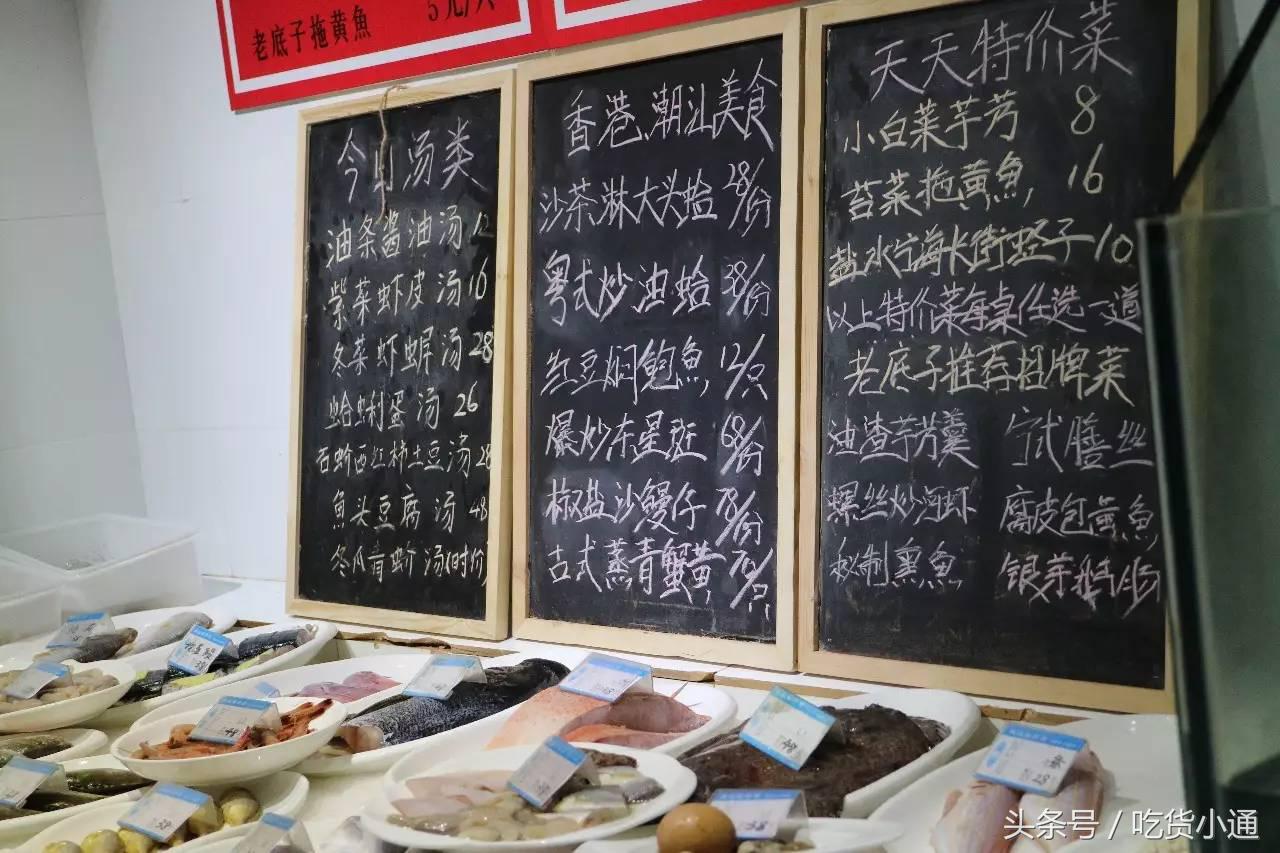 老底子拖黄魚 5元/只
今日汤类
油条酱油汤 12
紫菜虾皮汤 16
冬菜虾蛘汤 28
蛤蜊蛋汤 26
石蚧西红柿土豆汤 28
魚头豆腐汤 48
冬瓜青蚧汤(时价)
香港、潮汕美食
沙茶淋大头蛤 28/份
粤式炒油蛤 38/份
红豆焖鲍魚 12/只
爆炒东星斑 68/份
椒盐沙鳗仔 78/份
古式蒸青蟹黄 70/只
天天特价菜
小白菜芋艿 8
苔菜拖黄魚 16
盐水宁海长街蛏子 10
以上特价菜每桌任选一道
老底子推荐招牌菜
油渣芋艿羹 宁式膳丝
螺丝炒河虾 腐皮包黄魚
秘制熏魚 银芽
48
28
头条号 / 吃货小通